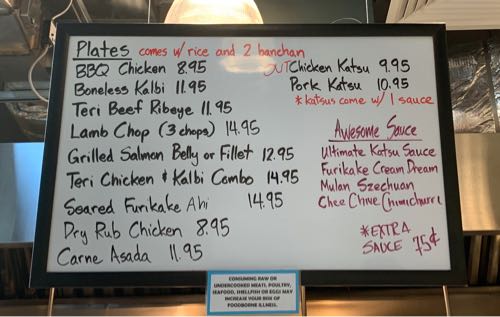 Plates comes w/ rice and 2 banchan
BBQ Chicken 8.95
Boneless Kalbi 11.95
Teri Beef Ribeye 11.95
Lamb Chop (3 chops) 14.95
Grilled Salmon Belly or Fillet 12.95
Teri Chicken & Kalbi Combo 14.95
Seared Furikake Ahi 14.95
Dry Rub Chicken 8.95
Carne Asada 11.95
OUT Chicken Katsu 9.95
Pork Katsu 10.95
*katsus come w/ 1 sauce
Awesome Sauce
Ultimate Katsu Sauce
Furikake Cream Dream
Mulan Szechuan
Chee Chive Chimichurri
*EXTRA
SAUCE 75¢
CONSUMING RAW OR
UNDERCOOKED MEATS, POULTRY,
SEAFOOD, SHELLFISH OR EGGS MAY
INCREASE YOUR RISK OF
FOODBORNE ILLNESS.